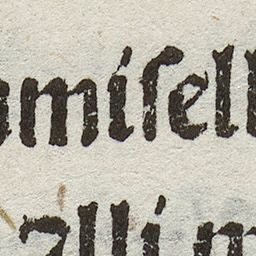 omiſell
alli m